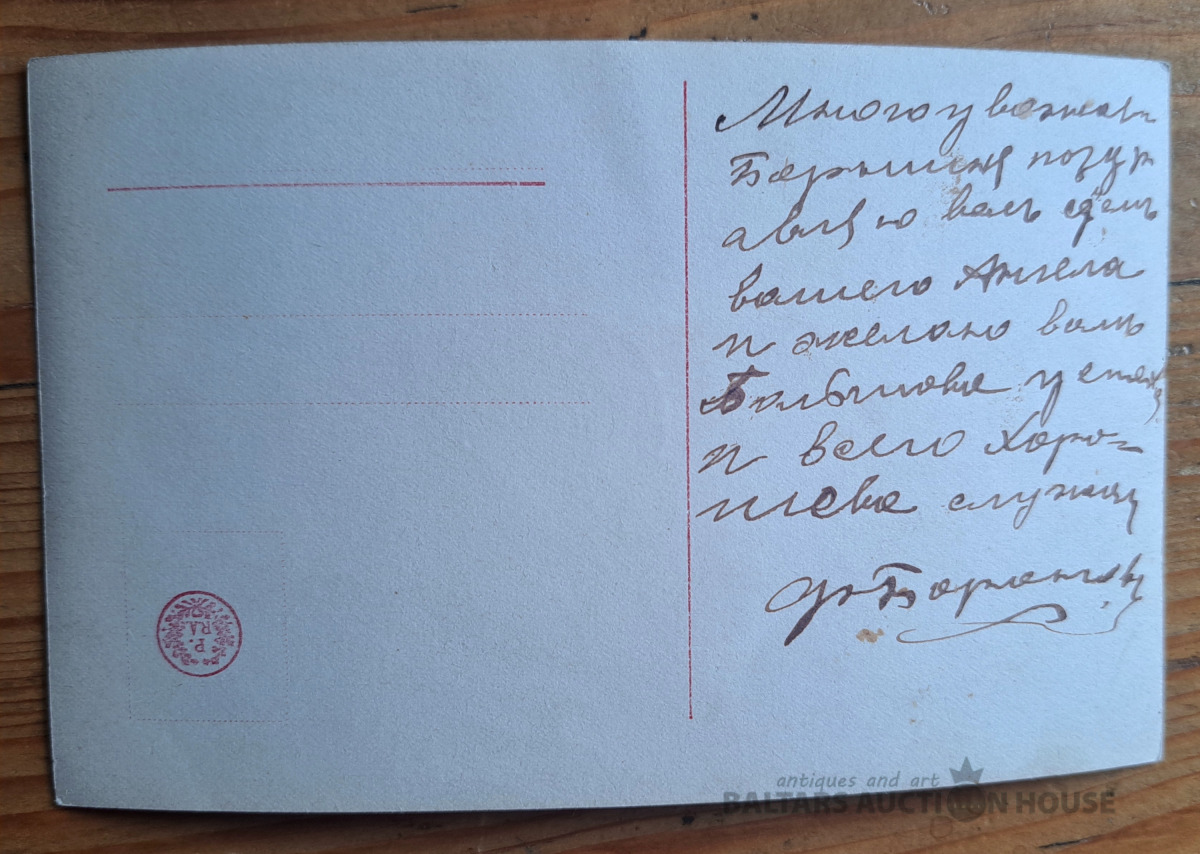 Многоуважая
Барышня поздр
авляю васъ сднемъ
вашего Ангела
и желаю вамъ
Большова успеха
и всего Хоро=
шева служащ
P.
RA.
antiques and art
BALTARS AUCTION HOUSE